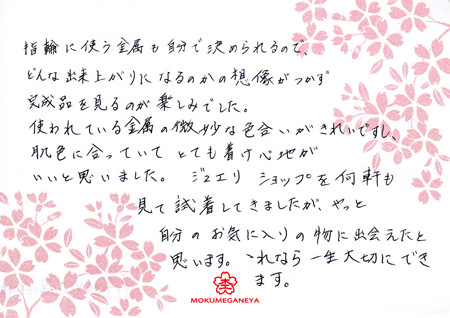 指輪に使う金属も自分で決められるので、
どんな出来上がりになるのかの想像がつかず
完成品を見るのが楽しみでした。
使われている金属の微妙な色合いがきれいですし、
肌色に合っていてとても着け心地が
いいと思いました。ジュエリショップを何軒も
見て試着してきましたが、やっと
自分のお気に入りの物に出会えたと
思います。これなら一生大切にでき
ます。
MOKUMEGANEYA